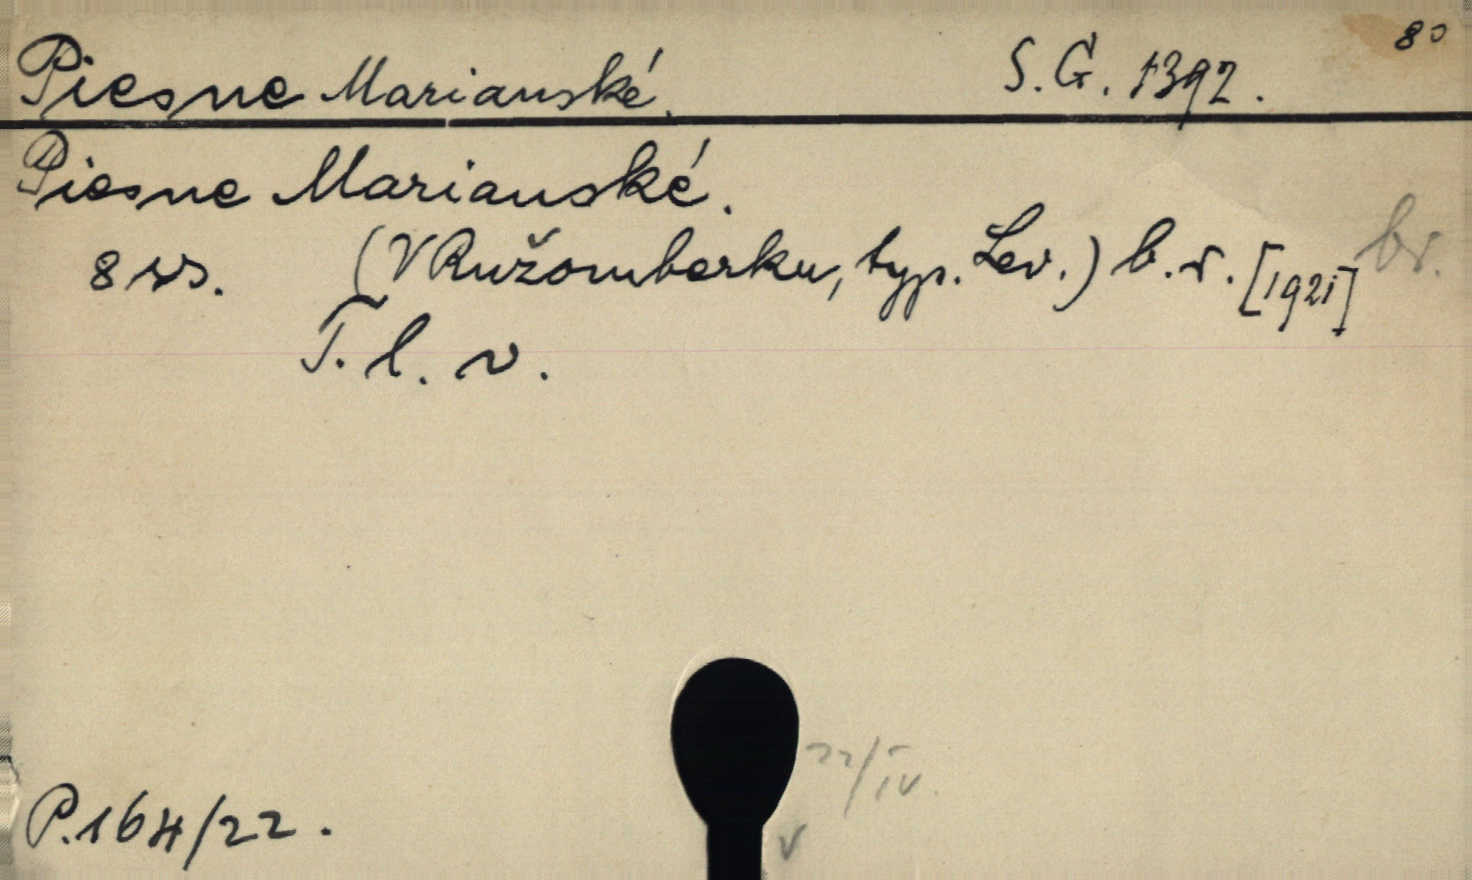 8°
Piesne Marianské. S. G. 1392.
Piesne Marianské.
8 ss. (V Ružomberku, typ. Lev.) b. r. [1921] br.
T. l. v.
22/IV.
P. 164/22. v